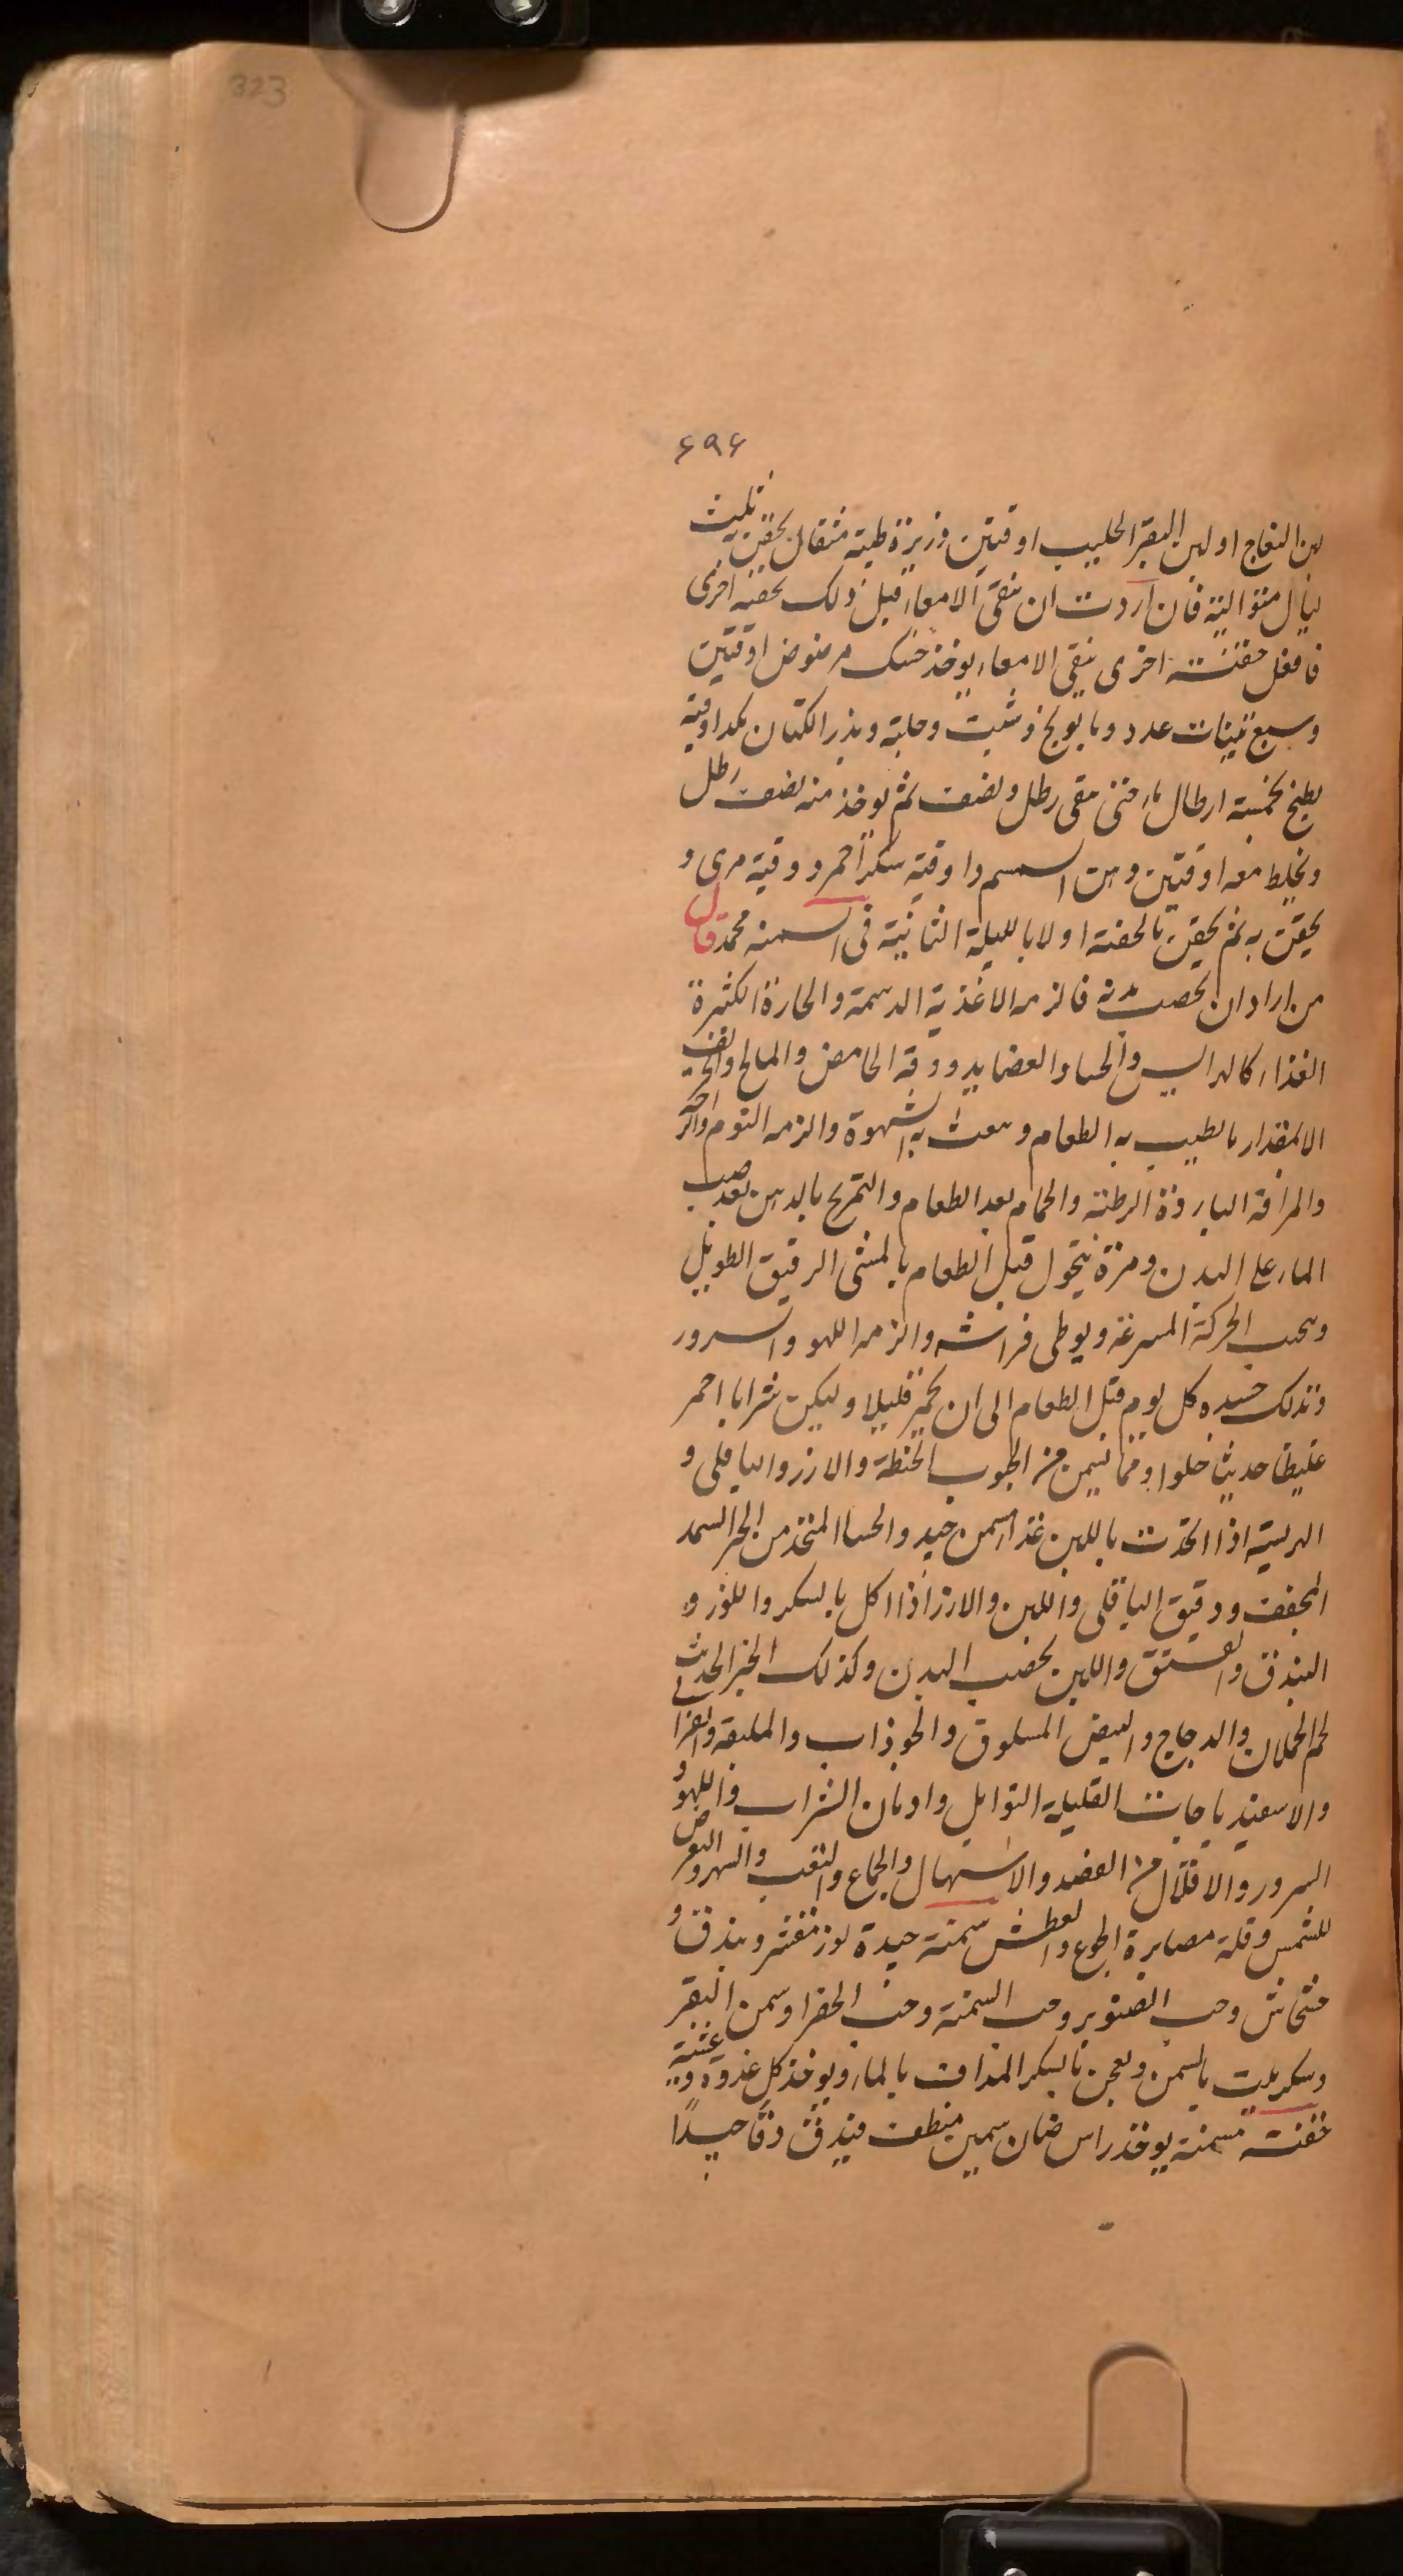 323
۶۹۶
لبن النعاج او لبن البقر الحليب اوقيتين وزيرة طيبة مثقال يحقن ثلث
ليال متوالية فان اردت ان تنقى الامعاء قبل ذلك بحقنه اخرى
فافعل حقنة اخرى ينقى الامعاء يوخذ حسك مرضوض اوقيتين
وسبع تينات عدد وبابونج وشبت وحلبة وبذر الكتان مكد اوقية
يطبخ بخمسة ارطال ماء حتى يبقى رطل ونصف ثم يوخذ منه نصف رطل
ويخلط معه اوقيتين دهن السمسم واوقية سكر احمر ووقية مرى و
يحقن به ثم يحقن بالحقنة اولا بالليلة الثانية فى السمنه محمد قال
من اراد ان يخصب بدنه فالزمه الاغذية الدسمة والحارة الكثيرة
الغذاء كالهرايس والحساو العصايد ووقه الحامض والمالح والحريف
الا بمقدار ما يطيب به الطعام ويبعث به الشهوة والزمه النوم والراحة
والمرافة الباردة الرطبة والحمام بعد الطعام والتمريخ بالدهن بعد صب
الماء على البدن ومرة يتحول قبل الطعام بالمشى الرقيق الطويل
ويجب الحركة المسرعة ويوطى فراشه والزمه اللهو والسرور
وتدلك جسده كل يوم قبل الطعام الى ان يحمر قليلا وليكن شرابا احمر
غليظا حديثا حلوا ومما يسمن من الحبوب الحنطة والارز والباقلى و
الهريسة اذا اتخذت باللبن غذاء يسمن جيد والحسا المتخذ من الخبز السمد
المجفف ودقيق الباقلى واللبن والارز اذا اكل بالسكر واللوز و
البندق والفستق واللبن يخصب البدن وكذلك الخبز الحديث
لحم الحملان والدجاج والبيض المسلوق والجوذاب والملبقة والفرا
والاسفيدباجات القليلة التوابل وادمان الشراب واللهو و
السرور والاقلال من الفصد والاسهال والجماع والتعب والسهر والتعرض
للشمس وقلة مصابرة الجوع والعطش سمنة جيدة لوز مقشر وبندق و
خشخاش وحب الصنوبر وحب السمنة وحب الخضرا وسمن البقر
وسكر يلت بالسمن ويعجن بالسكر المذاف بالماء ويوخذ كل غدوة وعشية
حقنة مسمنة يوخذ راس ضان سمين منظف فيدق دقا جيدًا